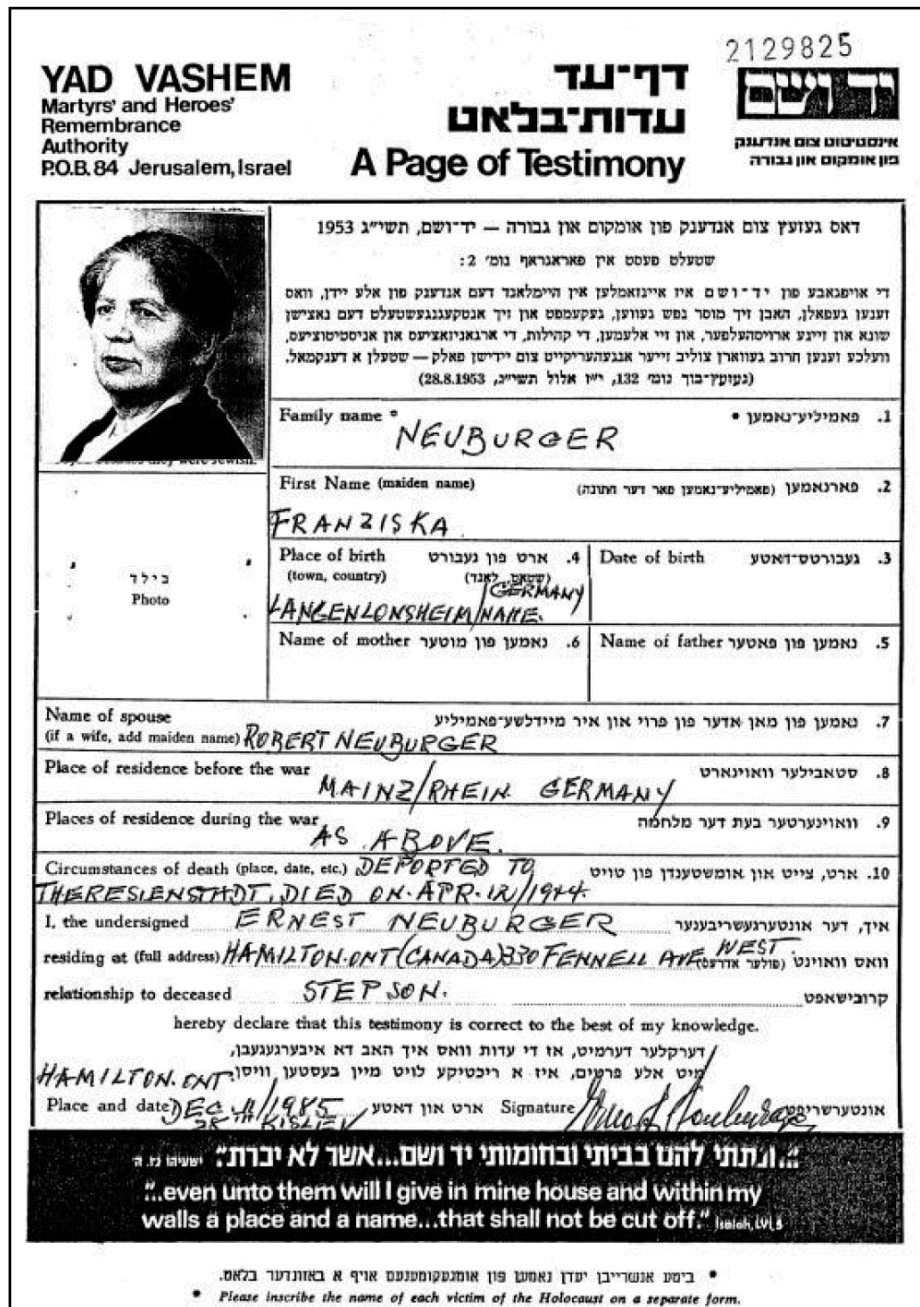 2129825
YAD VASHEM
Martyrs' and Heroes'
Remembrance
Authority
P.O.B. 84 Jerusalem, Israel
דף־עד
עדות־בלאט
A Page of Testimony
יד ושם
אינסטיטוט צום אנדענק
פון אומקום און גבורה
דאס געזעץ צום אנדענק פון אומקום און גבורה — יד־ושם, תשי״ג 1953
שטעלט פעסט אין פאראגראף נומ׳ 2:
די אויפגאבע פון יד־ושם איז איינזאמלען אין היימלאנד דעם אנדענק פון אלע יידן, וואס
זענען געפאלן, האבן זיך מוסר נפש געווען, געקעמפט און זיך אנטקעגנגעשטעלט דעם נאצישן
שונא און זיינע ארויסהעלפער, און זיי אלעמען, די קהילות, די ארגאניזאציעס און אינסטיטוציעס,
וועלכע זענען חרוב געווארן צוליב זייער אנגעהעריקייט צום יידישן פאלק — שטעלן א דענקמאל.
(געזעץ־בוך נומ׳ 132, י״ז אלול תשי״ג, 28.8.1953)
they were Jewish.
Family name * 1. פאמיליע־נאמען *
NEUBURGER
First Name (maiden name) 2. פארנאמען (פאמיליע־נאמען פאר דער חתונה)
FRANZISKA
Place of birth 4. ארט פון געבורט
(town, country) (שטאט, לאנד)
GERMANY
LANGENLONSHEIM/NAHE.
Date of birth 3. געבורטס־דאטע
בילד
Photo
Name of mother 6. נאמען פון מוטער
Name of father 5. נאמען פון פאטער
Name of spouse 7. נאמען פון מאן אדער פון פרוי און איר מיידלשע־פאמיליע
(if a wife, add maiden name) ROBERT NEUBURGER
Place of residence before the war 8. סטאבילער וואוינארט
MAINZ/RHEIN GERMANY
Places of residence during the war 9. וואוינערטער בעת דער מלחמה
AS ABOVE.
Circumstances of death (place, date, etc.) DEPORTED TO 10. ארט, צייט און אומשטענדן פון טויט
THERESIENSTADT. DIED ON. APR. 12/1944.
I, the undersigned ERNEST NEUBURGER איך, דער אונטערגעשריבענער
residing at (full address) HAMILTON. ONT (CANADA) 330 FENNELL AVE WEST. וואס וואוינט (פולער אדרעס)
relationship to deceased STEPSON. קרובישאפט
hereby declare that this testimony is correct to the best of my knowledge.
דערקלער דערמיט, אז די עדות וואס איך האב דא איבערגעגעבן,
מיט אלע פרטים, איז א ריכטיקע לויט מיין בעסטען וויסן.
HAMILTON. ONT.
Place and date DEC. 11/1985 ארט און דאטע Signature אונטערשריפט
28TH KISLEV
"..ונתתי להם בביתי ובחומותי יד ושם...אשר לא יכרת." ישעיהו נו, ה
"..even unto them will I give in mine house and within my
walls a place and a name...that shall not be cut off." Isaiah, LVI, 5
* ביטע אנשרייבן יעדן נאמען פון אומגעקומענעם אויף א באזונדער בלאט.
* Please inscribe the name of each victim of the Holocaust on a separate form.